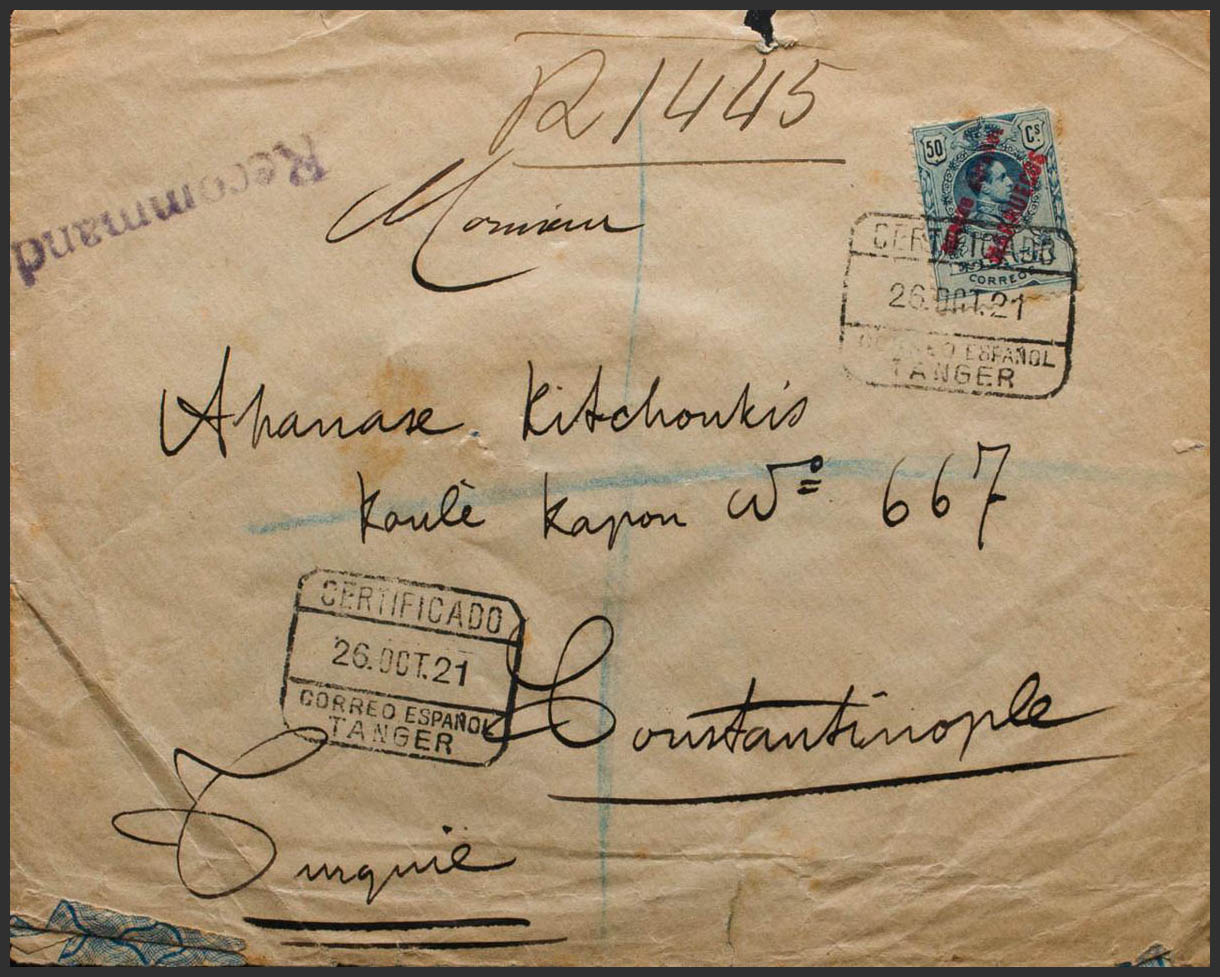 R 1445
Recommand
50 Cs
MARRUECOS
CORREOS
Monsieur
CERTIFICADO
26.OCT.21
CORREO ESPAÑOL
TANGER
Athanase Kitchoukis
Koulé Kapou No 667
CERTIFICADO
26.OCT.21
CORREO ESPAÑOL
TANGER
Constantinople
Turquie